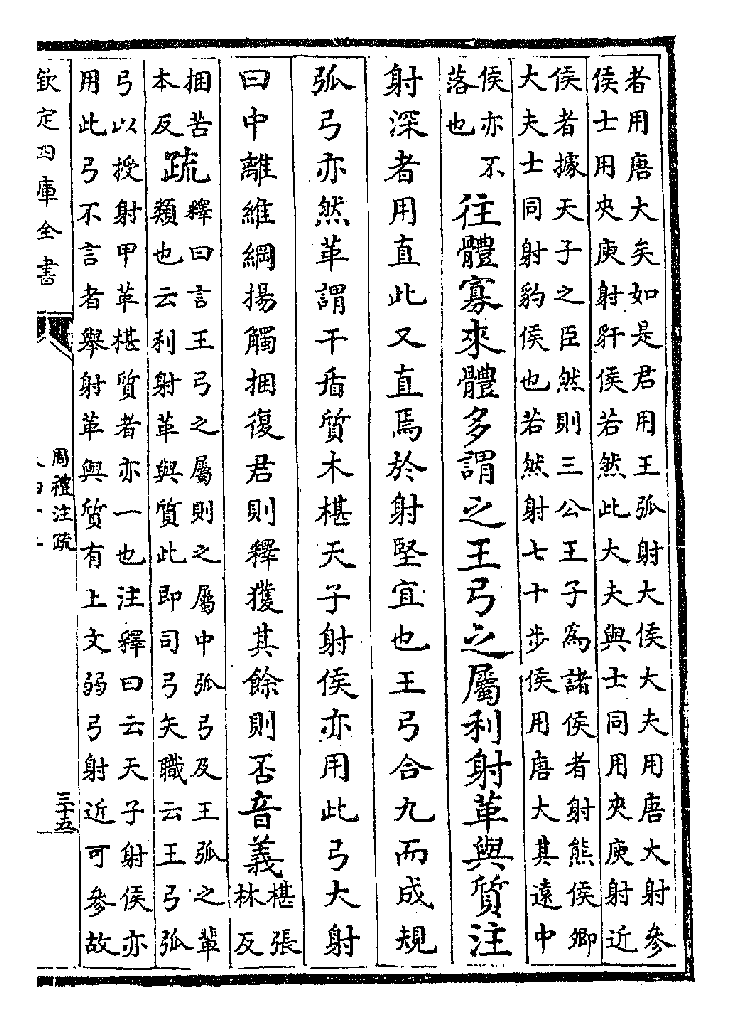 者用唐大矣如是君用王弧射大侯大夫用唐大射參
侯士用夾庾射豻侯若然此大夫與士同用夾庾射近
侯者據天子之臣然則三公王子為諸侯者射熊侯卿
大夫士同射豹侯也若然射七十步侯用唐大其遠中
侯亦不
落也
往體寡來體多謂之王弓之屬利射革與質注
射深者用直此又直焉於射堅宜也王弓合九而成規
弧弓亦然革謂干盾質木椹天子射侯亦用此弓大射
曰中離維綱揚觸捆復君則釋獲其餘則否音義
椹張
林反
捆苦
本反
疏
釋曰言王弓之屬則之屬中弧弓及王弧之輩
類也云利射革與質此即司弓矢職云王弓弧
弓以授射甲革椹質者亦一也注釋曰云天子射侯亦
用此弓不言者舉射革與質有上文弱弓射近可參故
欽定四庫全書
周禮注疏
三十五